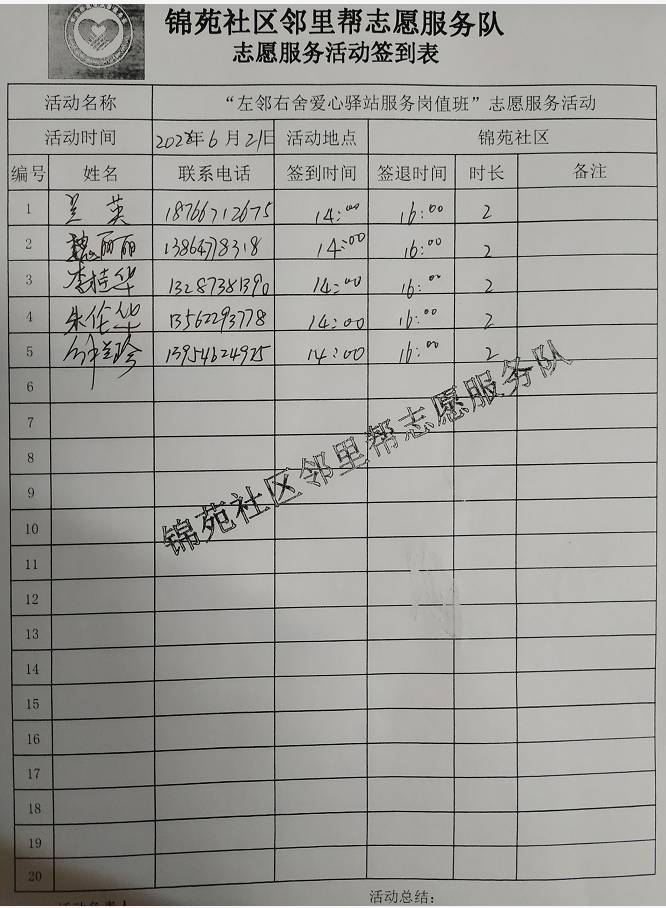 锦苑社区邻里帮志愿服务队
志愿服务活动签到表
活动名称 “左邻右舍爱心驿站服务岗值班”志愿服务活动
活动时间 2022年6月21日 活动地点 锦苑社区
编号 姓名 联系电话 签到时间 签退时间 时长 备注
1 兰英 18766712675 14:00 16:00 2
2 魏丽丽 13864778318 14:00 16:00 2
3 李桂华 13287381390 14:00 16:00 2
4 朱伦华 13562293778 14:00 16:00 2
5 13954624925 14:00 16:00 2
6
7
8
9
10
11
12
13
14
15
16
17
18
19
20
锦苑社区邻里帮志愿服务队
活动总结：